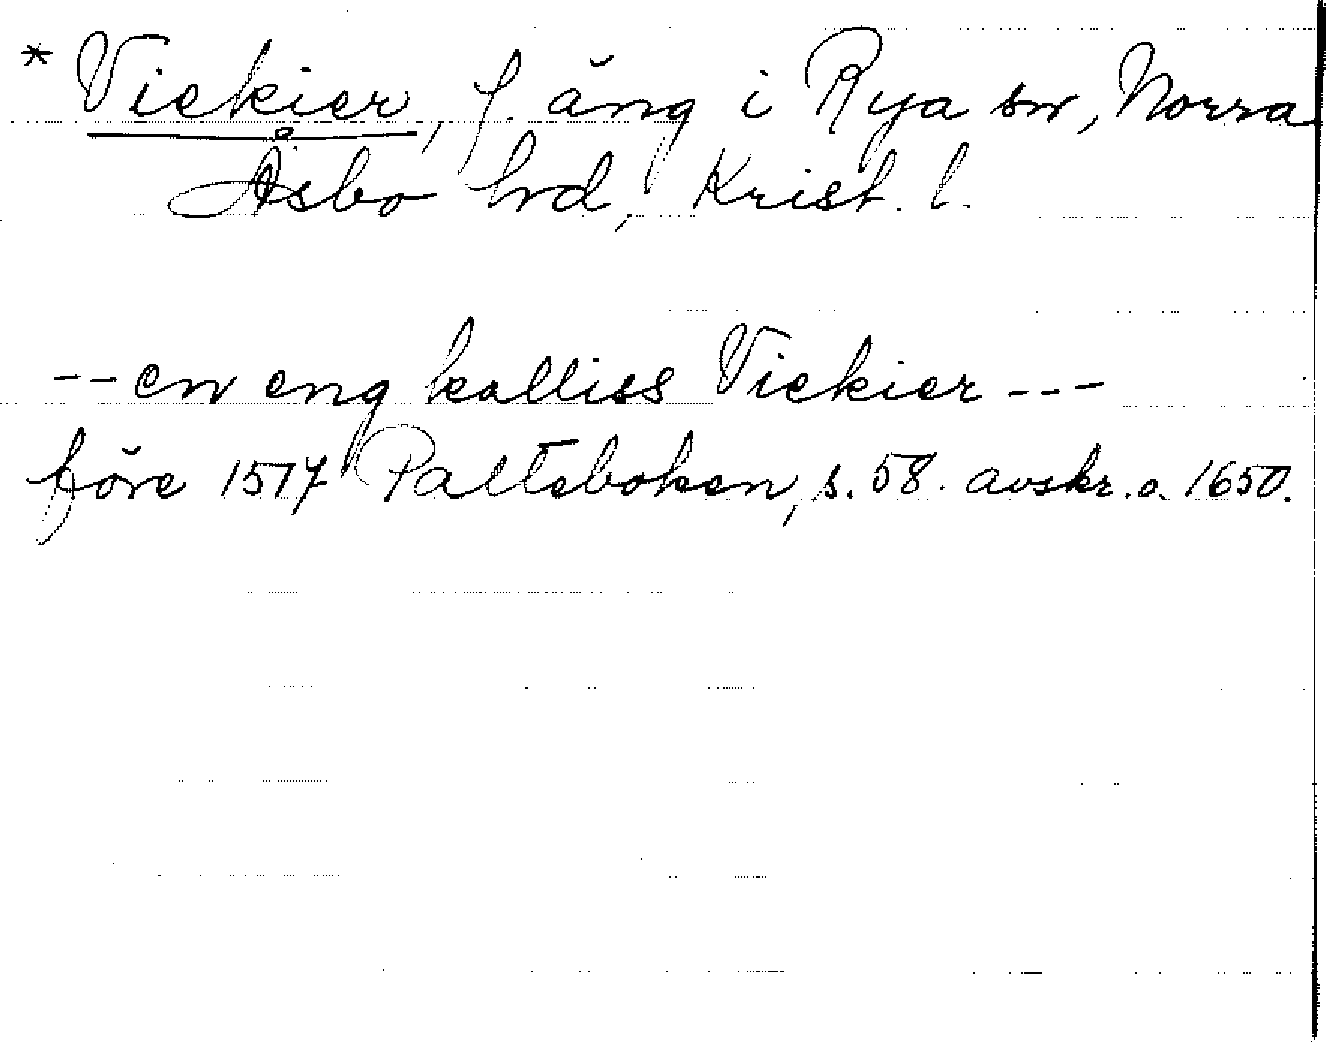 * Viekier, f. äng i Rya sn, Norra
Åsbo hrd, Krist. l.
-- en eng kalliss Viekier ---
före 1517 Palteboken, s. 58. avskr. o. 1650.